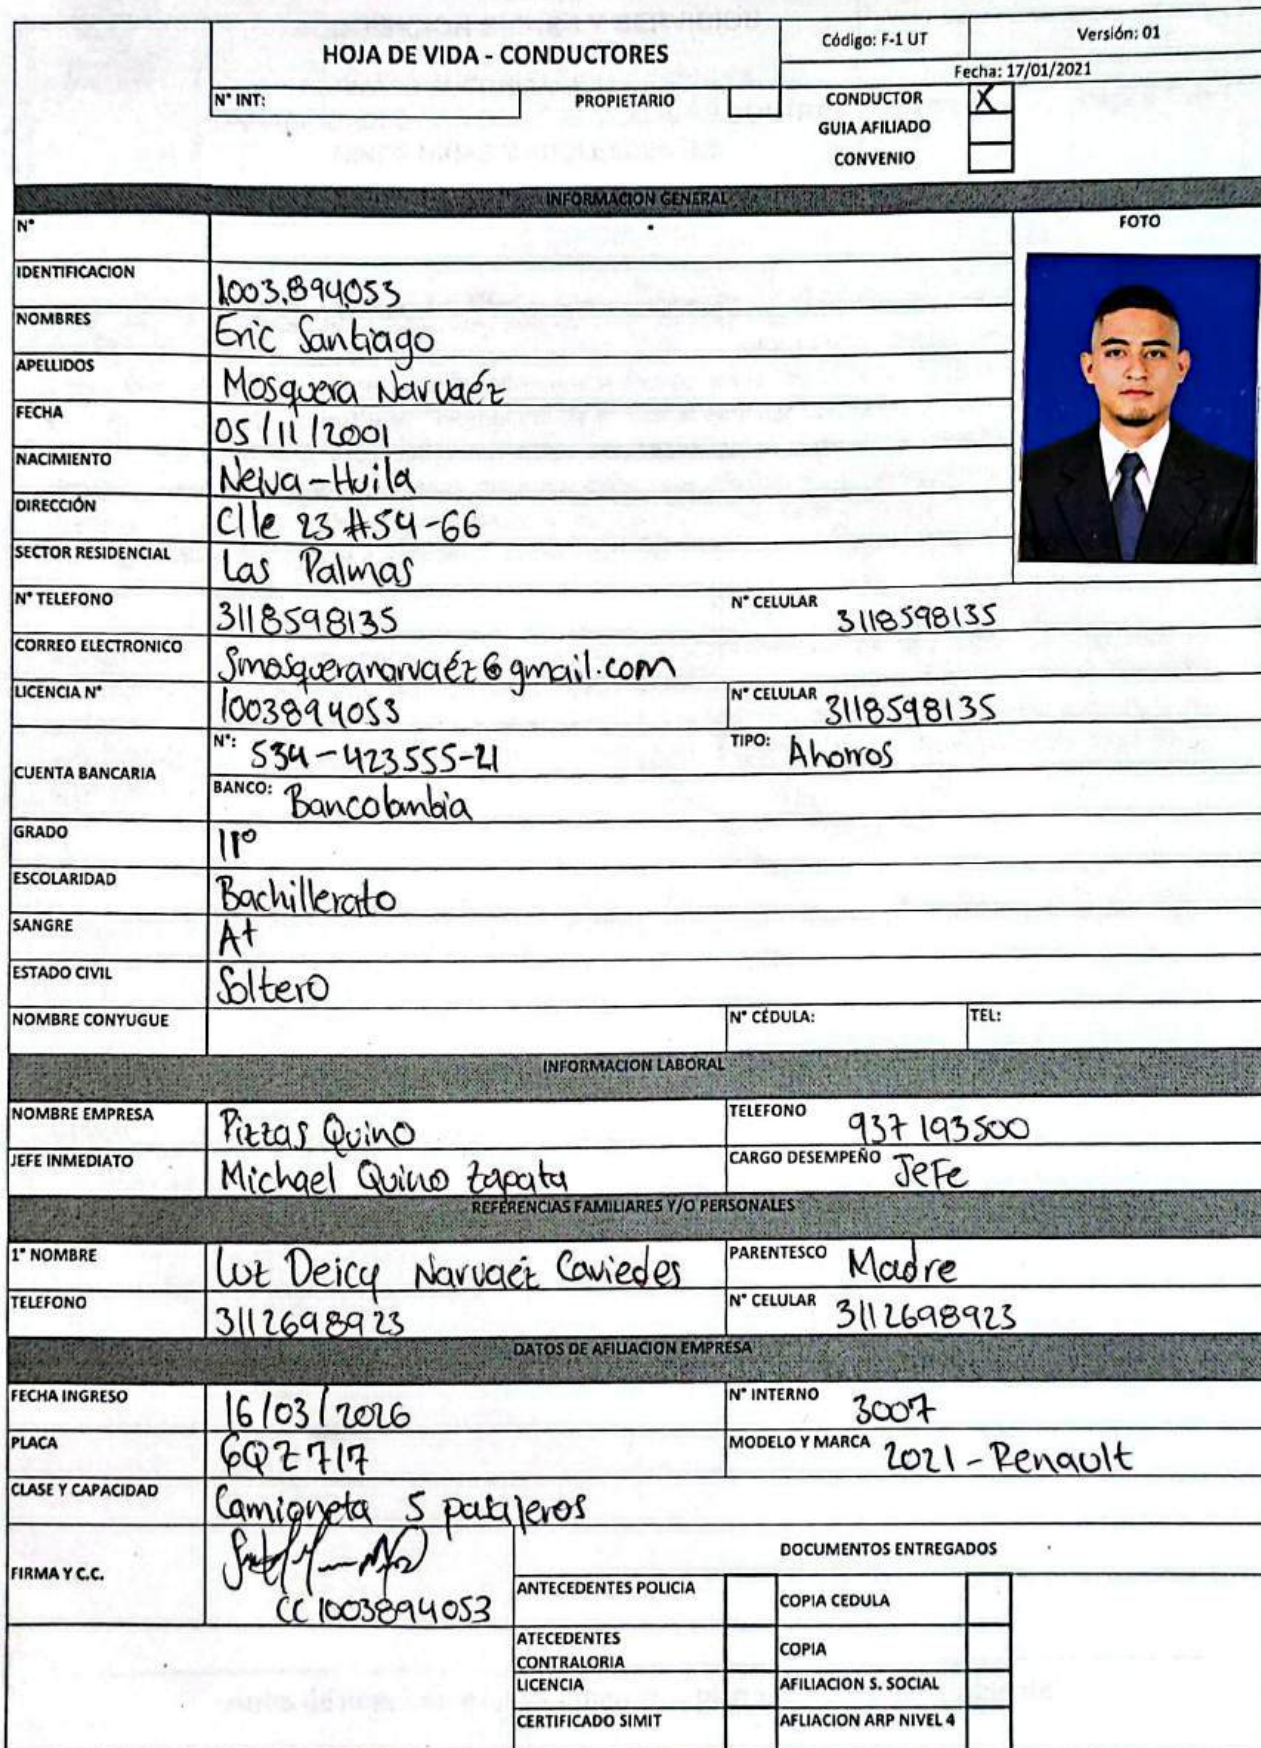 HOJA DE VIDA - CONDUCTORES
Código: F-1 UT
Versión: 01
Fecha: 17/01/2021
N° INT:
PROPIETARIO
CONDUCTOR X
GUIA AFILIADO
CONVENIO
INFORMACION GENERAL
N°
FOTO
IDENTIFICACION 1003.894.053
NOMBRES Eric Santiago
APELLIDOS Mosquera Narvaéz
FECHA 05/11/2001
NACIMIENTO Neiva-Huila
DIRECCIÓN Clle 23 #54-66
SECTOR RESIDENCIAL Las Palmas
N° TELEFONO 3118598135 N° CELULAR 3118598135
CORREO ELECTRONICO Smosqueranarvaéz@gmail.com
LICENCIA N° 1003894053 N° CELULAR 3118598135
CUENTA BANCARIA N°: 534-423555-21 TIPO: Ahorros
BANCO: Bancolombia
GRADO 11°
ESCOLARIDAD Bachillerato
SANGRE A+
ESTADO CIVIL Soltero
NOMBRE CONYUGUE N° CÉDULA: TEL:
INFORMACION LABORAL
NOMBRE EMPRESA Pizzas Quino TELEFONO 937193500
JEFE INMEDIATO Michael Quino Zapata CARGO DESEMPEÑO Jefe
REFERENCIAS FAMILIARES Y/O PERSONALES
1° NOMBRE Luz Deicy Narvaéz Caviedes PARENTESCO Madre
TELEFONO 3112698923 N° CELULAR 3112698923
DATOS DE AFILIACION EMPRESA
FECHA INGRESO 16/03/2026 N° INTERNO 3007
PLACA GQZ717 MODELO Y MARCA 2021-Renault
CLASE Y CAPACIDAD Camioneta 5 pasajeros
FIRMA Y C.C.
CC 1003894053
DOCUMENTOS ENTREGADOS
ANTECEDENTES POLICIA COPIA CEDULA
ATECEDENTES CONTRALORIA COPIA
LICENCIA AFILIACION S. SOCIAL
CERTIFICADO SIMIT AFLIACION ARP NIVEL 4